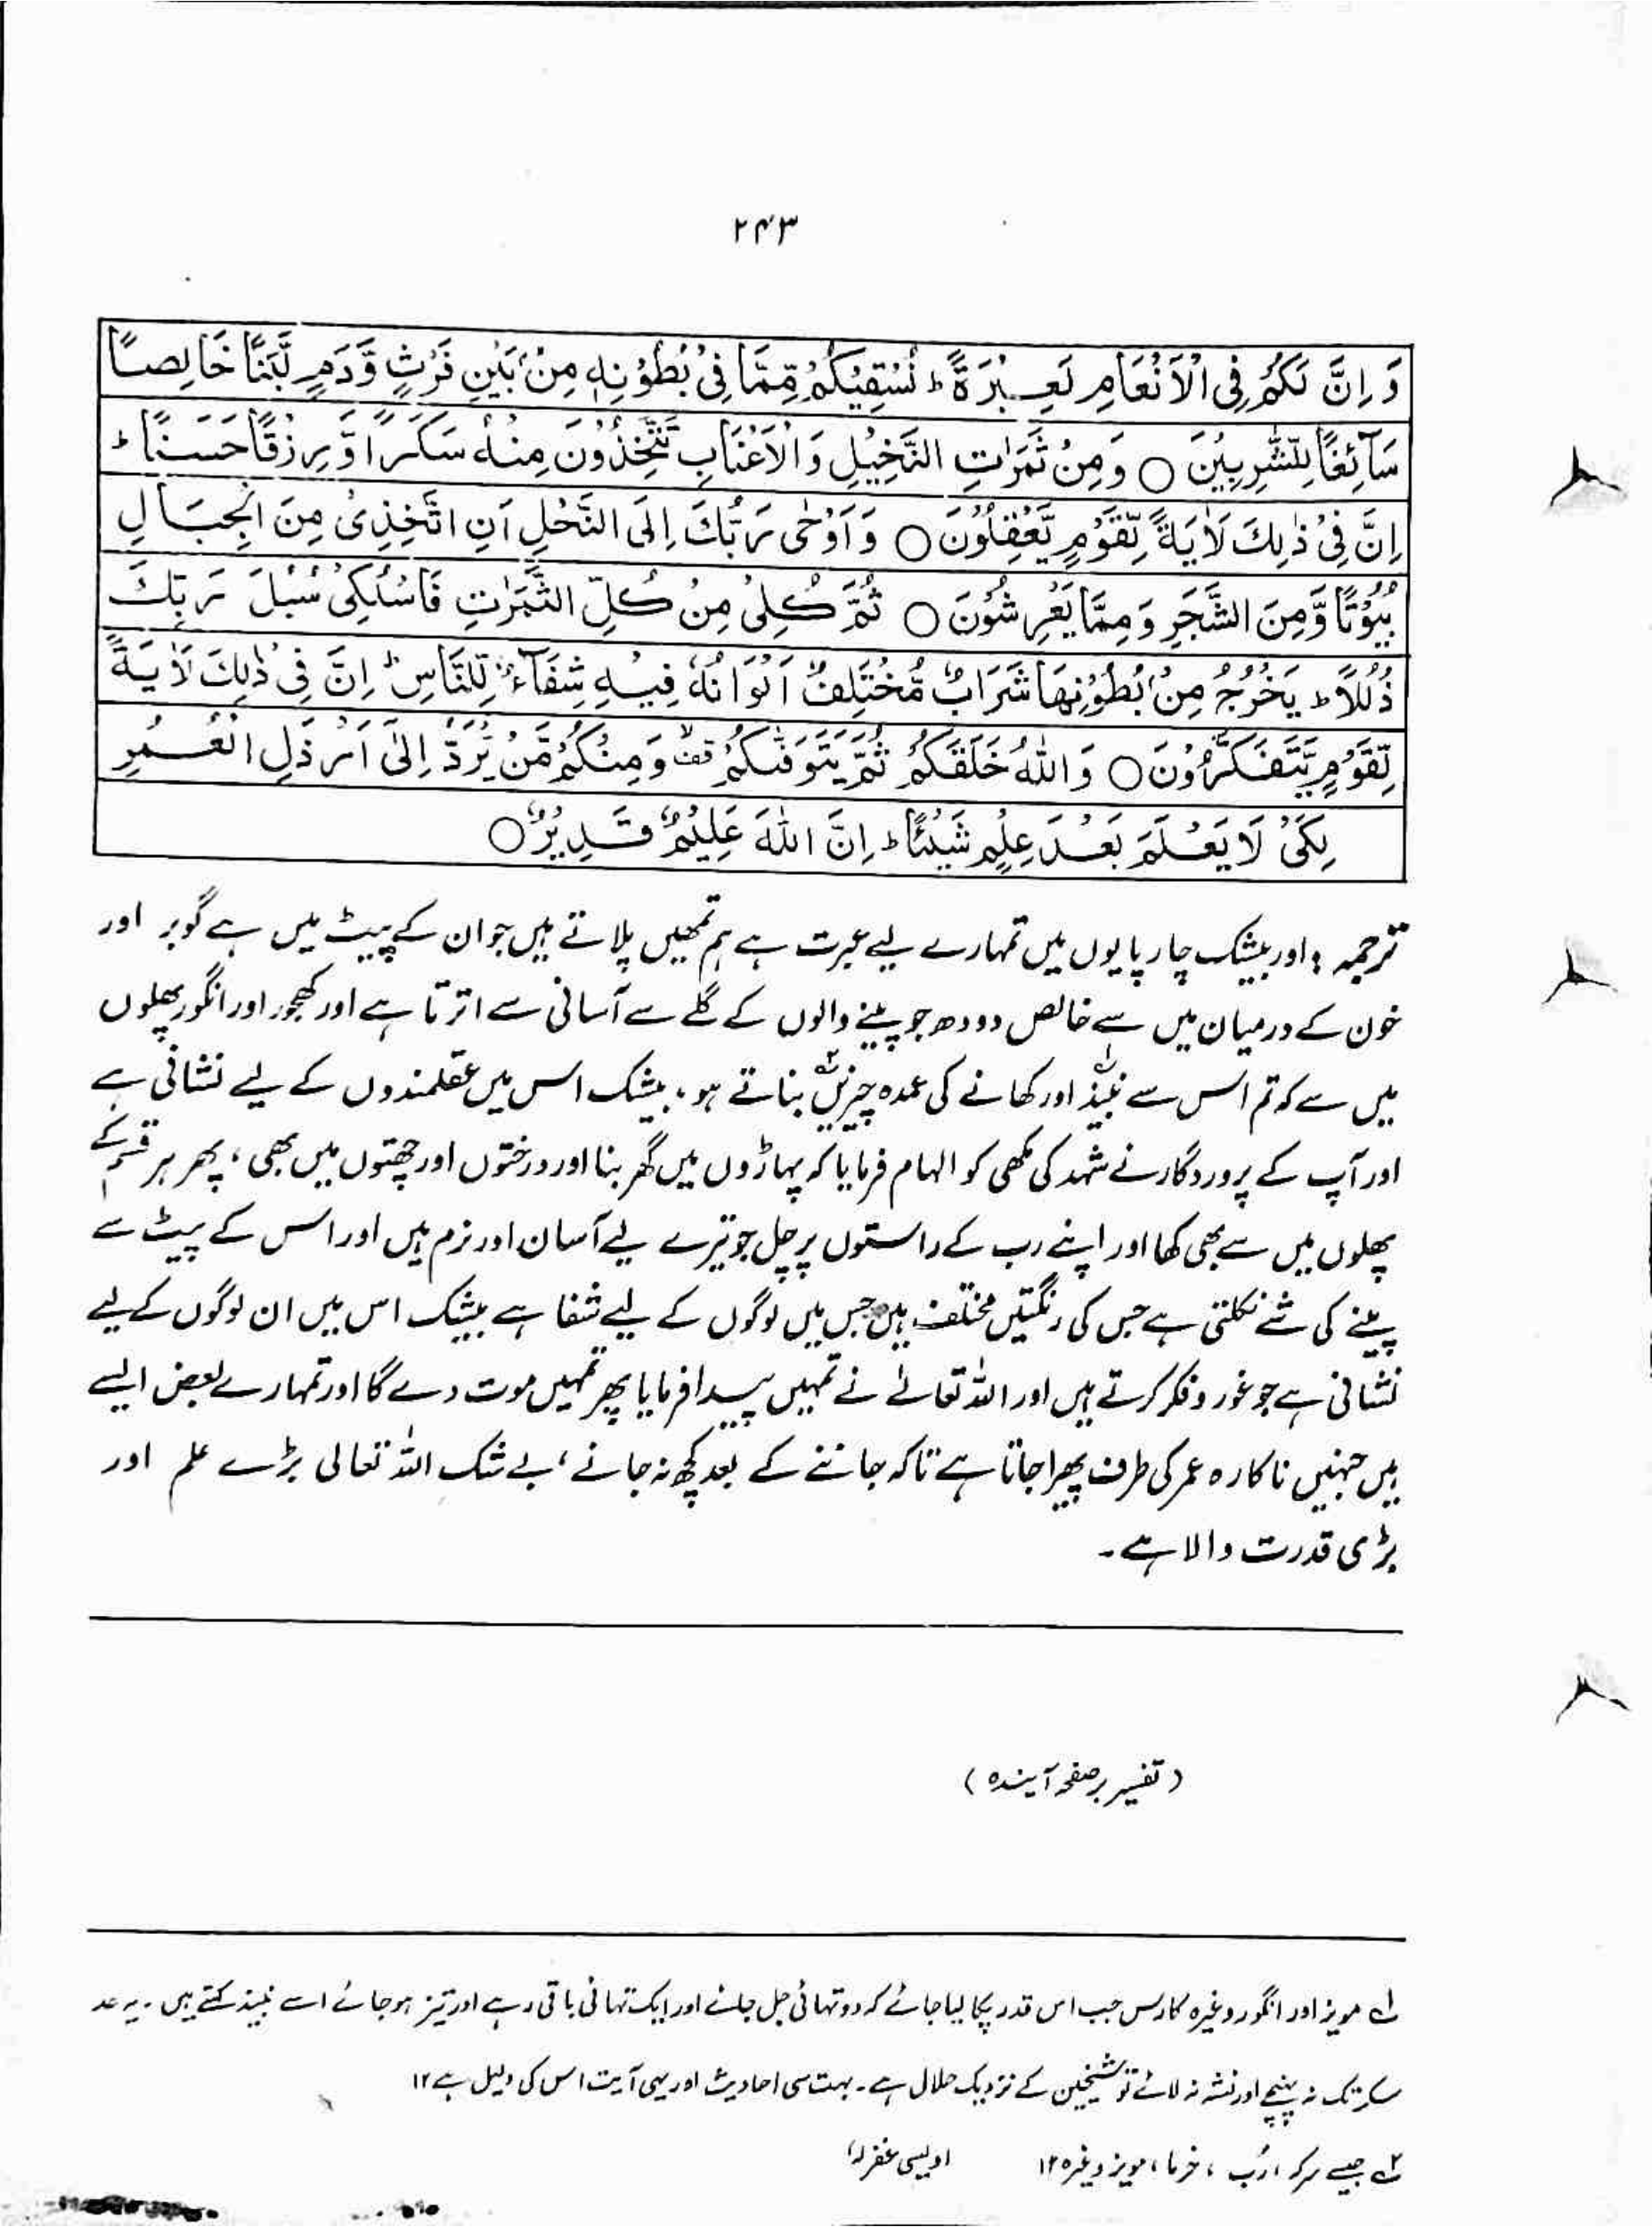 ۲۴۳
وَ اِنَّ لَكُمْ فِى الْاَنْعَامِ لَعِبْرَةً ؕ نُسْقِيْكُمْ مِّمَّا فِىْ بُطُوْنِهٖ مِنْۢ بَيْنِ فَرْثٍ وَّ دَمٍ لَّبَنًا خَالِصًا
سَآئِغًا لِّلشّٰرِبِيْنَ ○ وَ مِنْ ثَمَرٰتِ النَّخِيْلِ وَ الْاَعْنَابِ تَتَّخِذُوْنَ مِنْهُ سَكَرًا وَّ رِزْقًا حَسَنًا ؕ
اِنَّ فِىْ ذٰلِكَ لَاٰيَةً لِّقَوْمٍ يَّعْقِلُوْنَ ○ وَ اَوْحٰى رَبُّكَ اِلَى النَّحْلِ اَنِ اتَّخِذِىْ مِنَ الْجِبَالِ
بُيُوْتًا وَّ مِنَ الشَّجَرِ وَ مِمَّا يَعْرِشُوْنَ ○ ثُمَّ كُلِىْ مِنْ كُلِّ الثَّمَرٰتِ فَاسْلُكِىْ سُبُلَ رَبِّكِ
ذُلُلًا ؕ يَخْرُجُ مِنْۢ بُطُوْنِهَا شَرَابٌ مُّخْتَلِفٌ اَلْوَانُهٗ فِيْهِ شِفَآءٌ لِّلنَّاسِ ؕ اِنَّ فِىْ ذٰلِكَ لَاٰيَةً
لِّقَوْمٍ يَّتَفَكَّرُوْنَ ○ وَ اللّٰهُ خَلَقَكُمْ ثُمَّ يَتَوَفّٰىكُمْ قف وَ مِنْكُمْ مَّنْ يُّرَدُّ اِلٰٓى اَرْذَلِ الْعُمُرِ
لِكَىْ لَا يَعْلَمَ بَعْدَ عِلْمٍ شَيْئًا ؕ اِنَّ اللّٰهَ عَلِيْمٌ قَدِيْرٌ ○
ترجمہ : اور بیشک چار پایوں میں تمہارے لیے عبرت ہے ہم تمھیں پلاتے ہیں جو ان کے پیٹ میں ہے گوبر اور
خون کے درمیان میں سے خالص دودھ جو پینے والوں کے گلے سے آسانی سے اترتا ہے اور کھجور اور انگور پھلوں
میں سے کہ تم اس سے نبیذ۱ اور کھانے کی عمدہ چیزیں۲ بناتے ہو، بیشک اس میں عقلمندوں کے لیے نشانی ہے
اور آپ کے پروردگار نے شہد کی مکھی کو الہام فرمایا کہ پہاڑوں میں گھر بنا اور درختوں اور چھتوں میں بھی ، پھر ہر قسم کے
پھلوں میں سے بھی کھا اور اپنے رب کے راستوں پر چل جو تیرے لیے آسان اور نرم ہیں اور اس کے پیٹ سے
پینے کی شے نکلتی ہے جس کی رنگتیں مختلف ہیں جس میں لوگوں کے لیے شفا ہے بیشک اس میں ان لوگوں کے لیے
نشانی ہے جو غور و فکر کرتے ہیں اور اللہ تعالےٰ نے تمہیں پیدا فرمایا پھر تمہیں موت دے گا اور تمہارے بعض ایسے
ہیں جنہیں ناکارہ عمر کی طرف پھیرا جاتا ہے تاکہ جاننے کے بعد کچھ نہ جانے ، بے شک اللہ تعالی بڑے علم اور
بڑی قدرت والا ہے ۔
( تفسیر بر صفحہ آیندہ )
۱ مویز اور انگور وغیرہ کا رس جب اس قدر پکا لیا جائے کہ دو تہائی جل جائے اور ایک تہائی باقی رہے اور تیز ہوجائے اسے نبیذ کہتے ہیں ۔ یہ حد
سکر تک نہ پہنچے اور نشہ نہ لائے تو شیخین کے نزدیک حلال ہے ۔ بہت سی احادیث اور یہی آیت اس کی دلیل ہے ۱۲
۲ جیسے سرکہ ، رُب ، خرما ، مویز وغیرہ ۱۲ اویسی غفرلہٗ